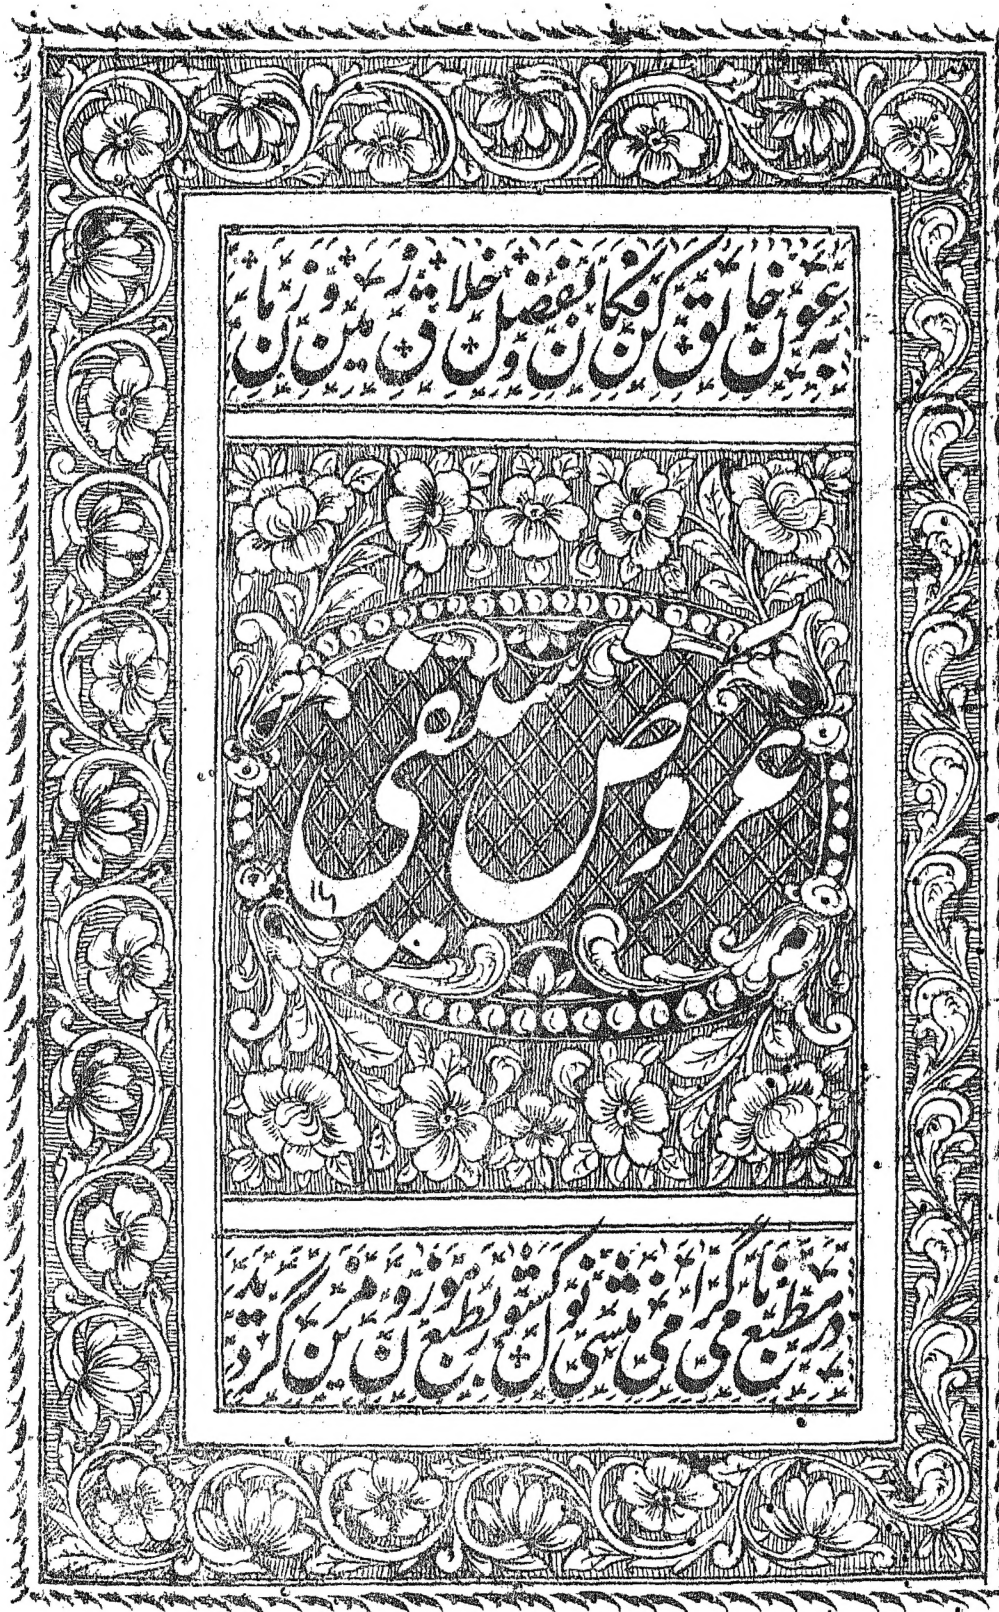 به عون خالق کن فکان و بفضل خلاق زمین و زمان
عروض سیفی
۱۲
در مطبع نامی گرامی منشی نولکشور بطبع موزون مزین گردید